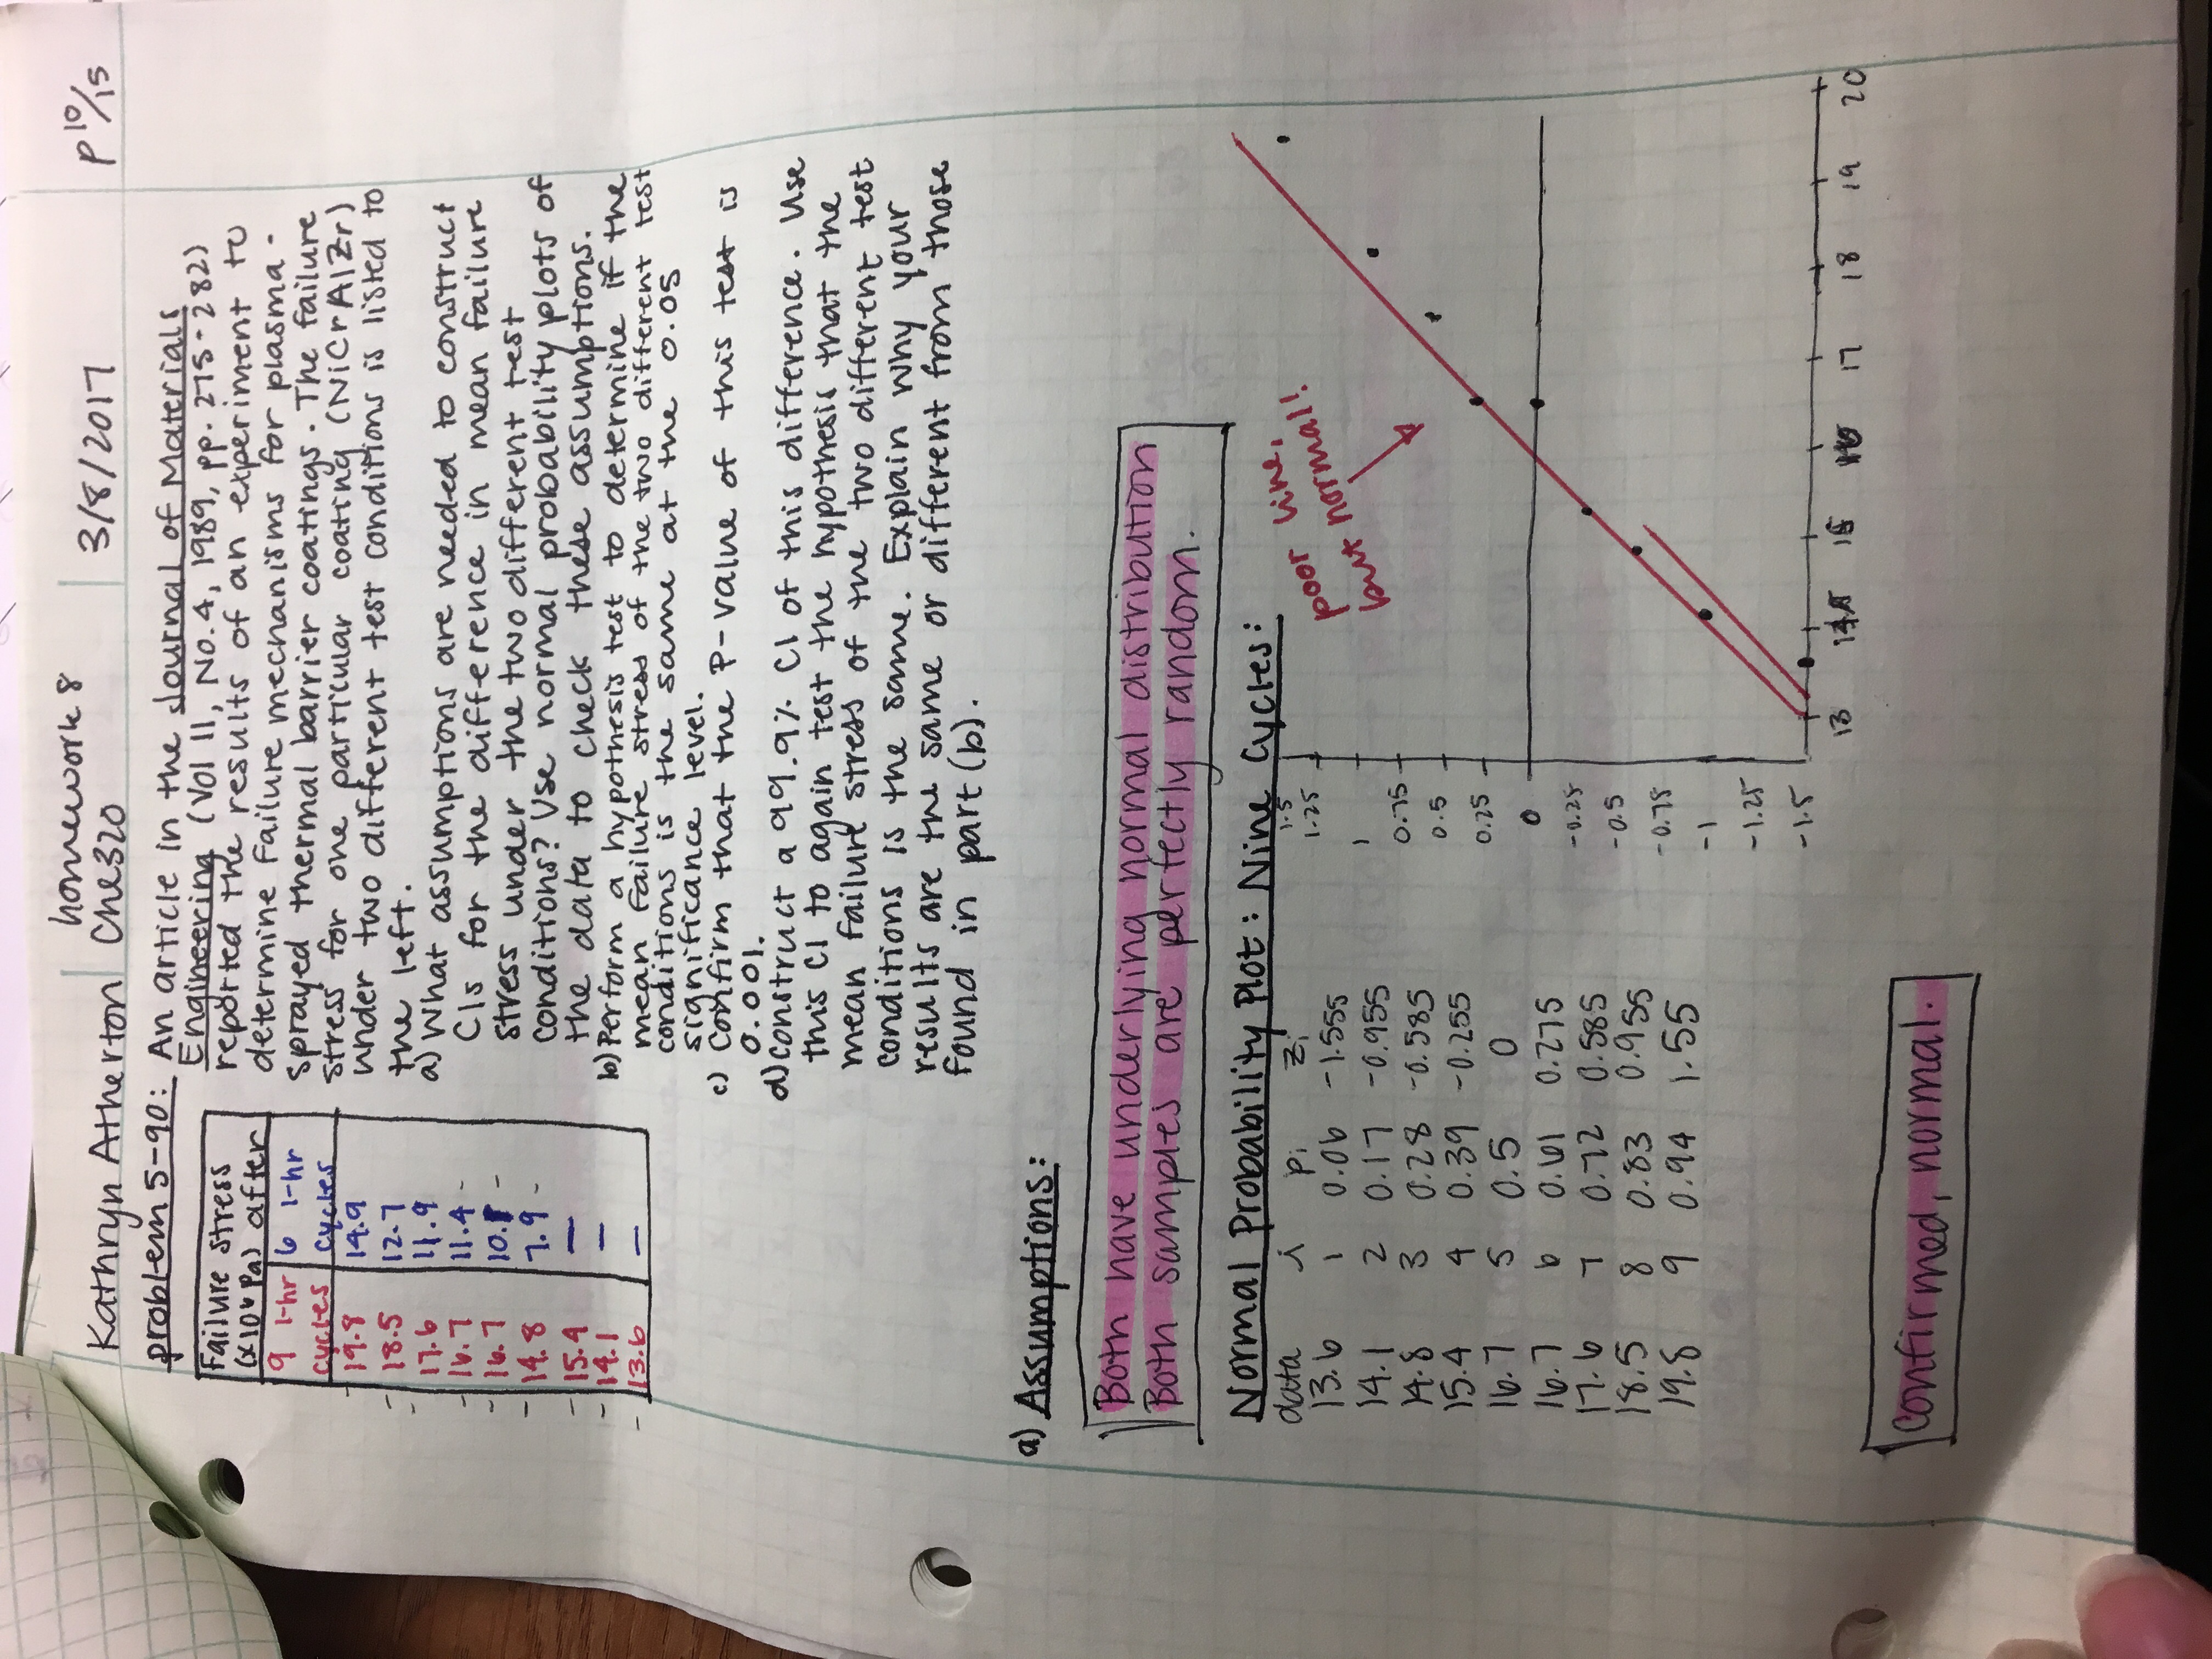 homework 8
Kathryn Atherton Che320 3/8/2017 p 10/15
problem 5-90: An article in the Journal of Materials
Engineering (Vol 11, No. 4, 1989, pp. 275-282)
reported the results of an experiment to
determine failure mechanisms for plasma-
sprayed thermal barrier coatings. The failure
stress for one particular coating (NiCrAlZr)
under two different test conditions is listed to
the left.
Failure stress
(x10⁶ Pa) after
9 1-hr 6 1-hr
cycles cycles
19.8 14.9
18.5 12.7
17.6 11.9
16.7 11.4 -
16.7 10. -
14.8 7.9 -
15.4 —
14.1 —
13.6 —
a) What assumptions are needed to construct
CIs for the difference in mean failure
stress under the two different test
conditions? Use normal probability plots of
the data to check these assumptions.
b) Perform a hypothesis test to determine if the
mean failure stress of the two different test
conditions is the same at the 0.05
significance level.
c) Confirm that the P-value of this test is
0.001.
d) construct a 99.9% CI of this difference. Use
this CI to again test the hypothesis that the
mean failure stress of the two different test
conditions is the same. Explain why your
results are the same or different from those
found in part (b).
a) Assumptions:
Both have underlying normal distribution
Both samples are perfectly random.
Normal Probability Plot: Nine Cycles:
data i pi zi
13.6 1 0.06 -1.555
14.1 2 0.17 -0.955
14.8 3 0.28 -0.585
15.4 4 0.39 -0.255
16.7 5 0.5 0
16.7 6 0.61 0.275
17.6 7 0.72 0.585
18.5 8 0.83 0.955
19.8 9 0.94 1.55
poor line,
but normal!
1.5
1.25
1
0.75
0.5
0.25
0
-0.25
-0.5
-0.75
-1
-1.25
-1.5
13 14 15 16 17 18 19 20
confirmed, normal.